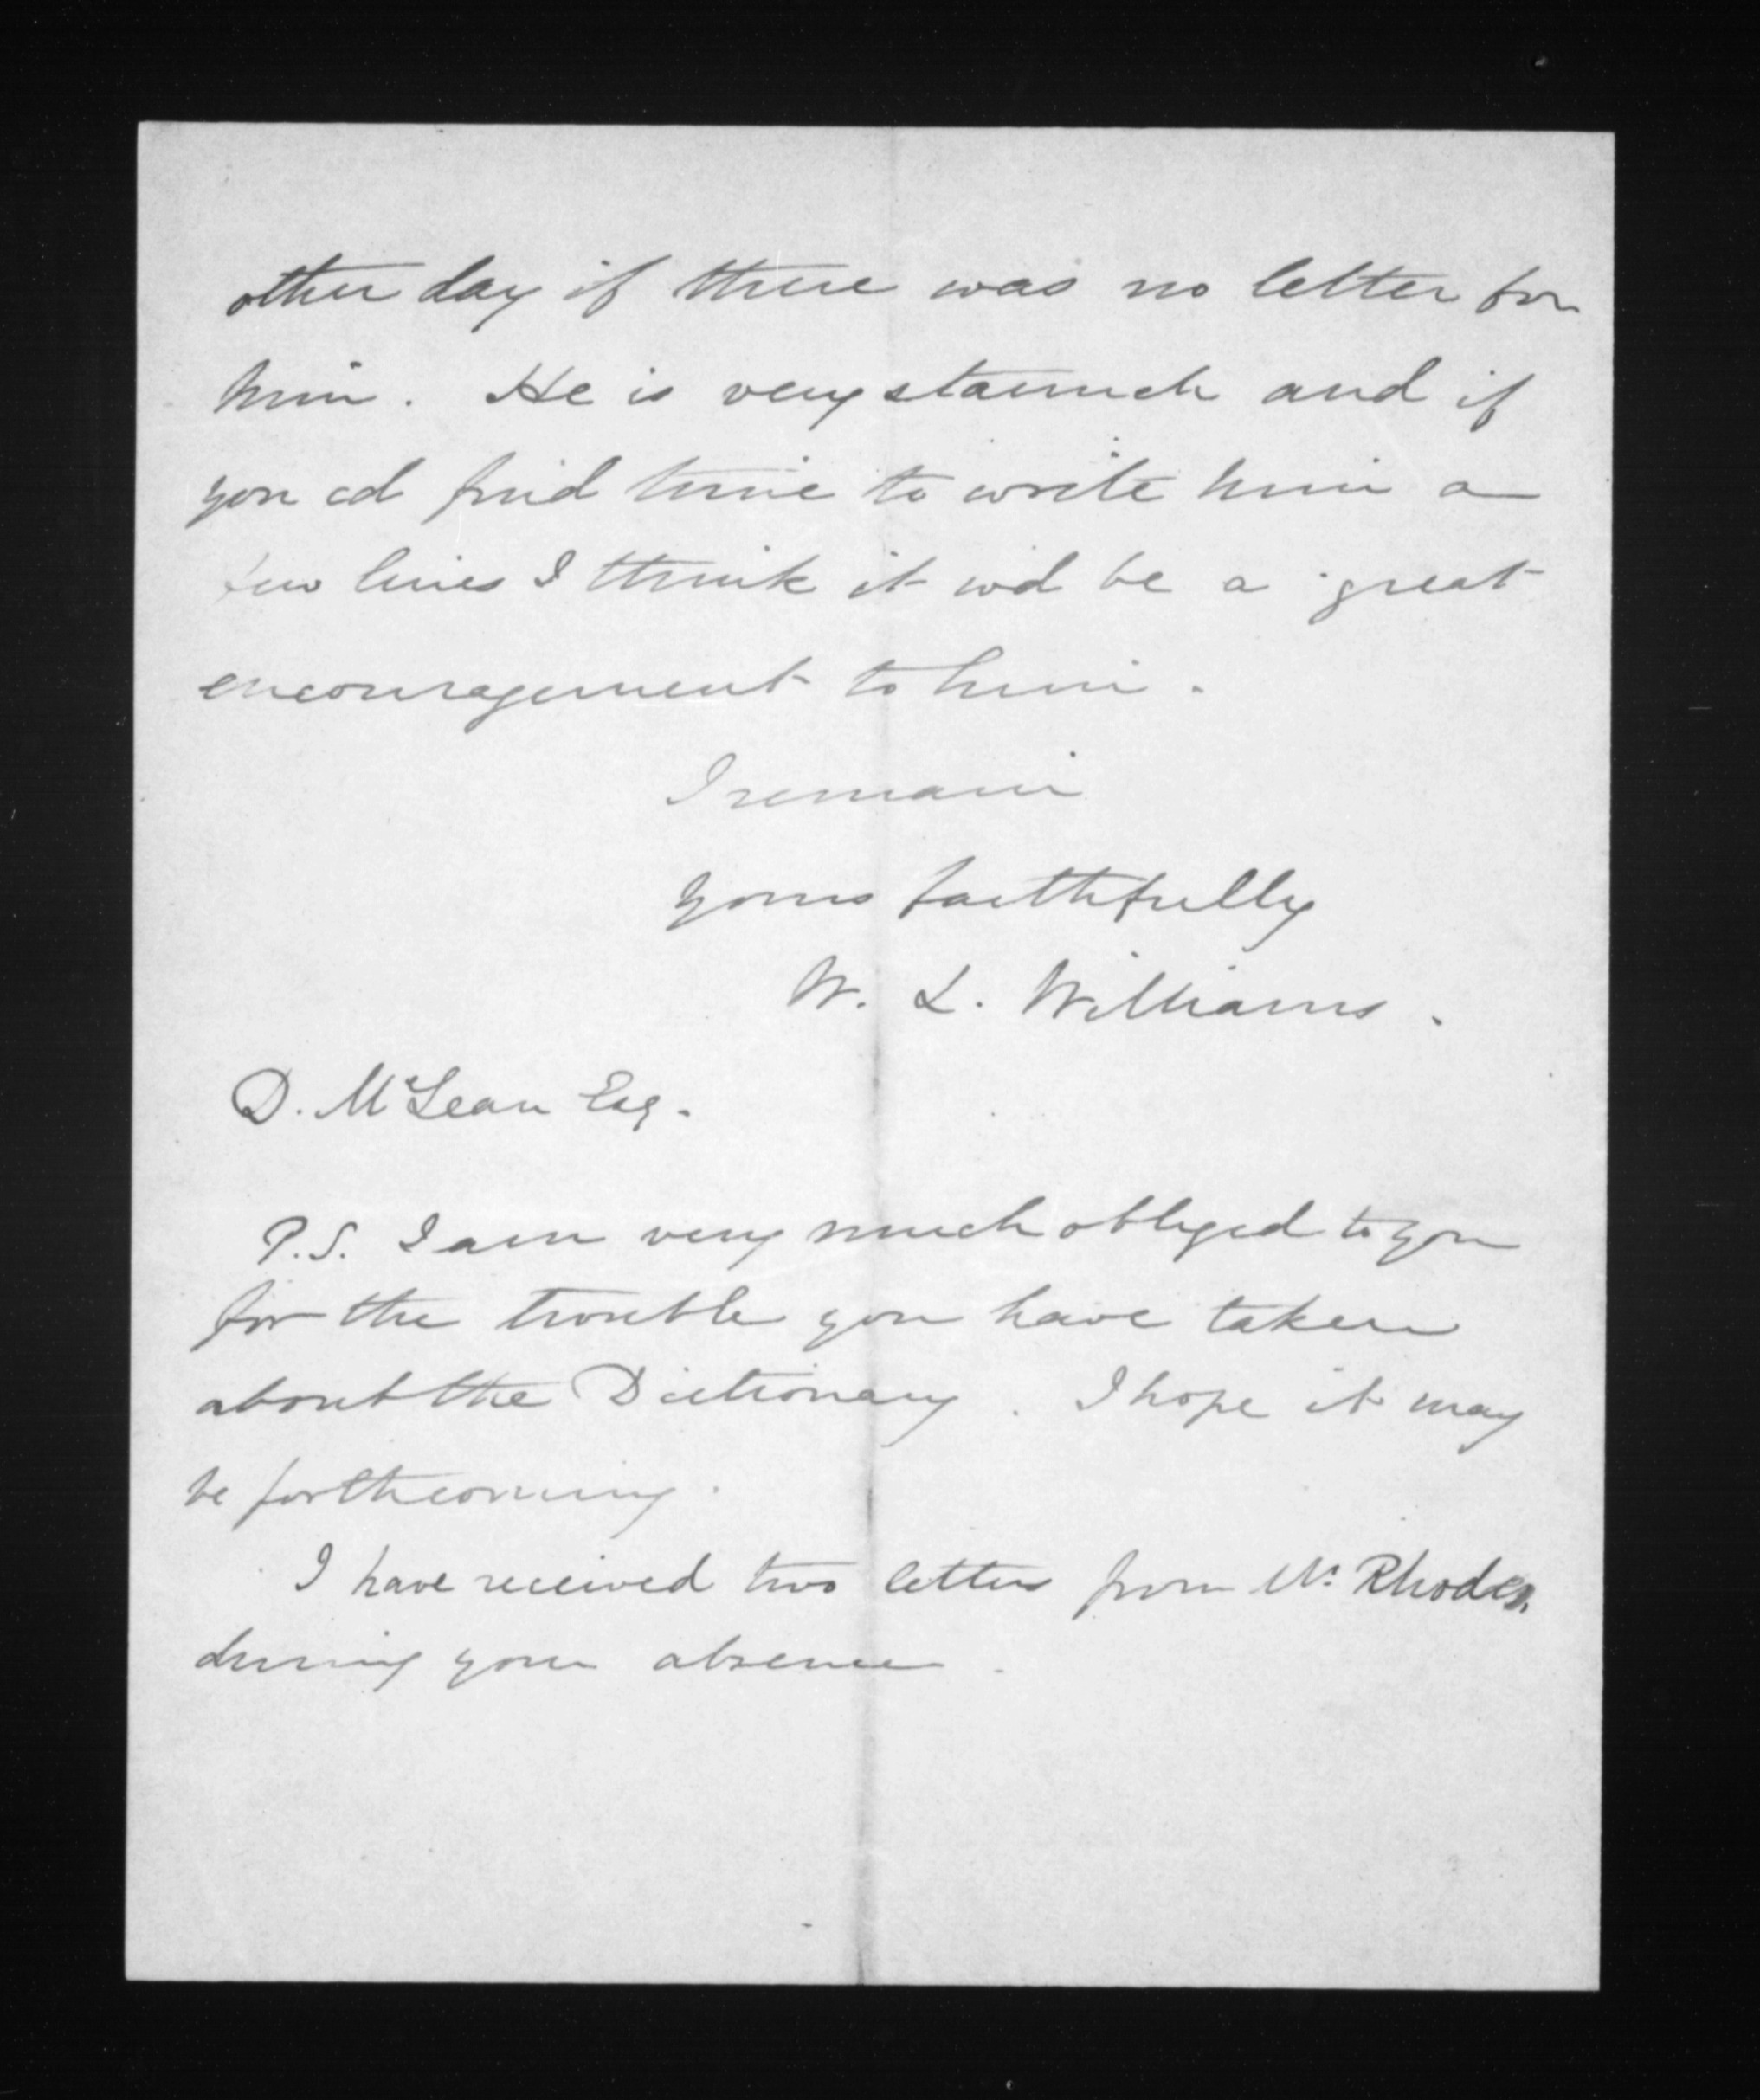 other day if there was no letter for
him. He is very staunch and if
you cd find time to write him a
few lines I think it wd be a great
encouragement to him.
I remain
yours faithfully
W. L. Williams.
D. McLean Esq.
P.S. I am very much obliged to you
for the trouble you have taken
about the Dictionary. I hope it may
be forthcoming.
I have received two letters from Mr Rhodes.
during your absence.